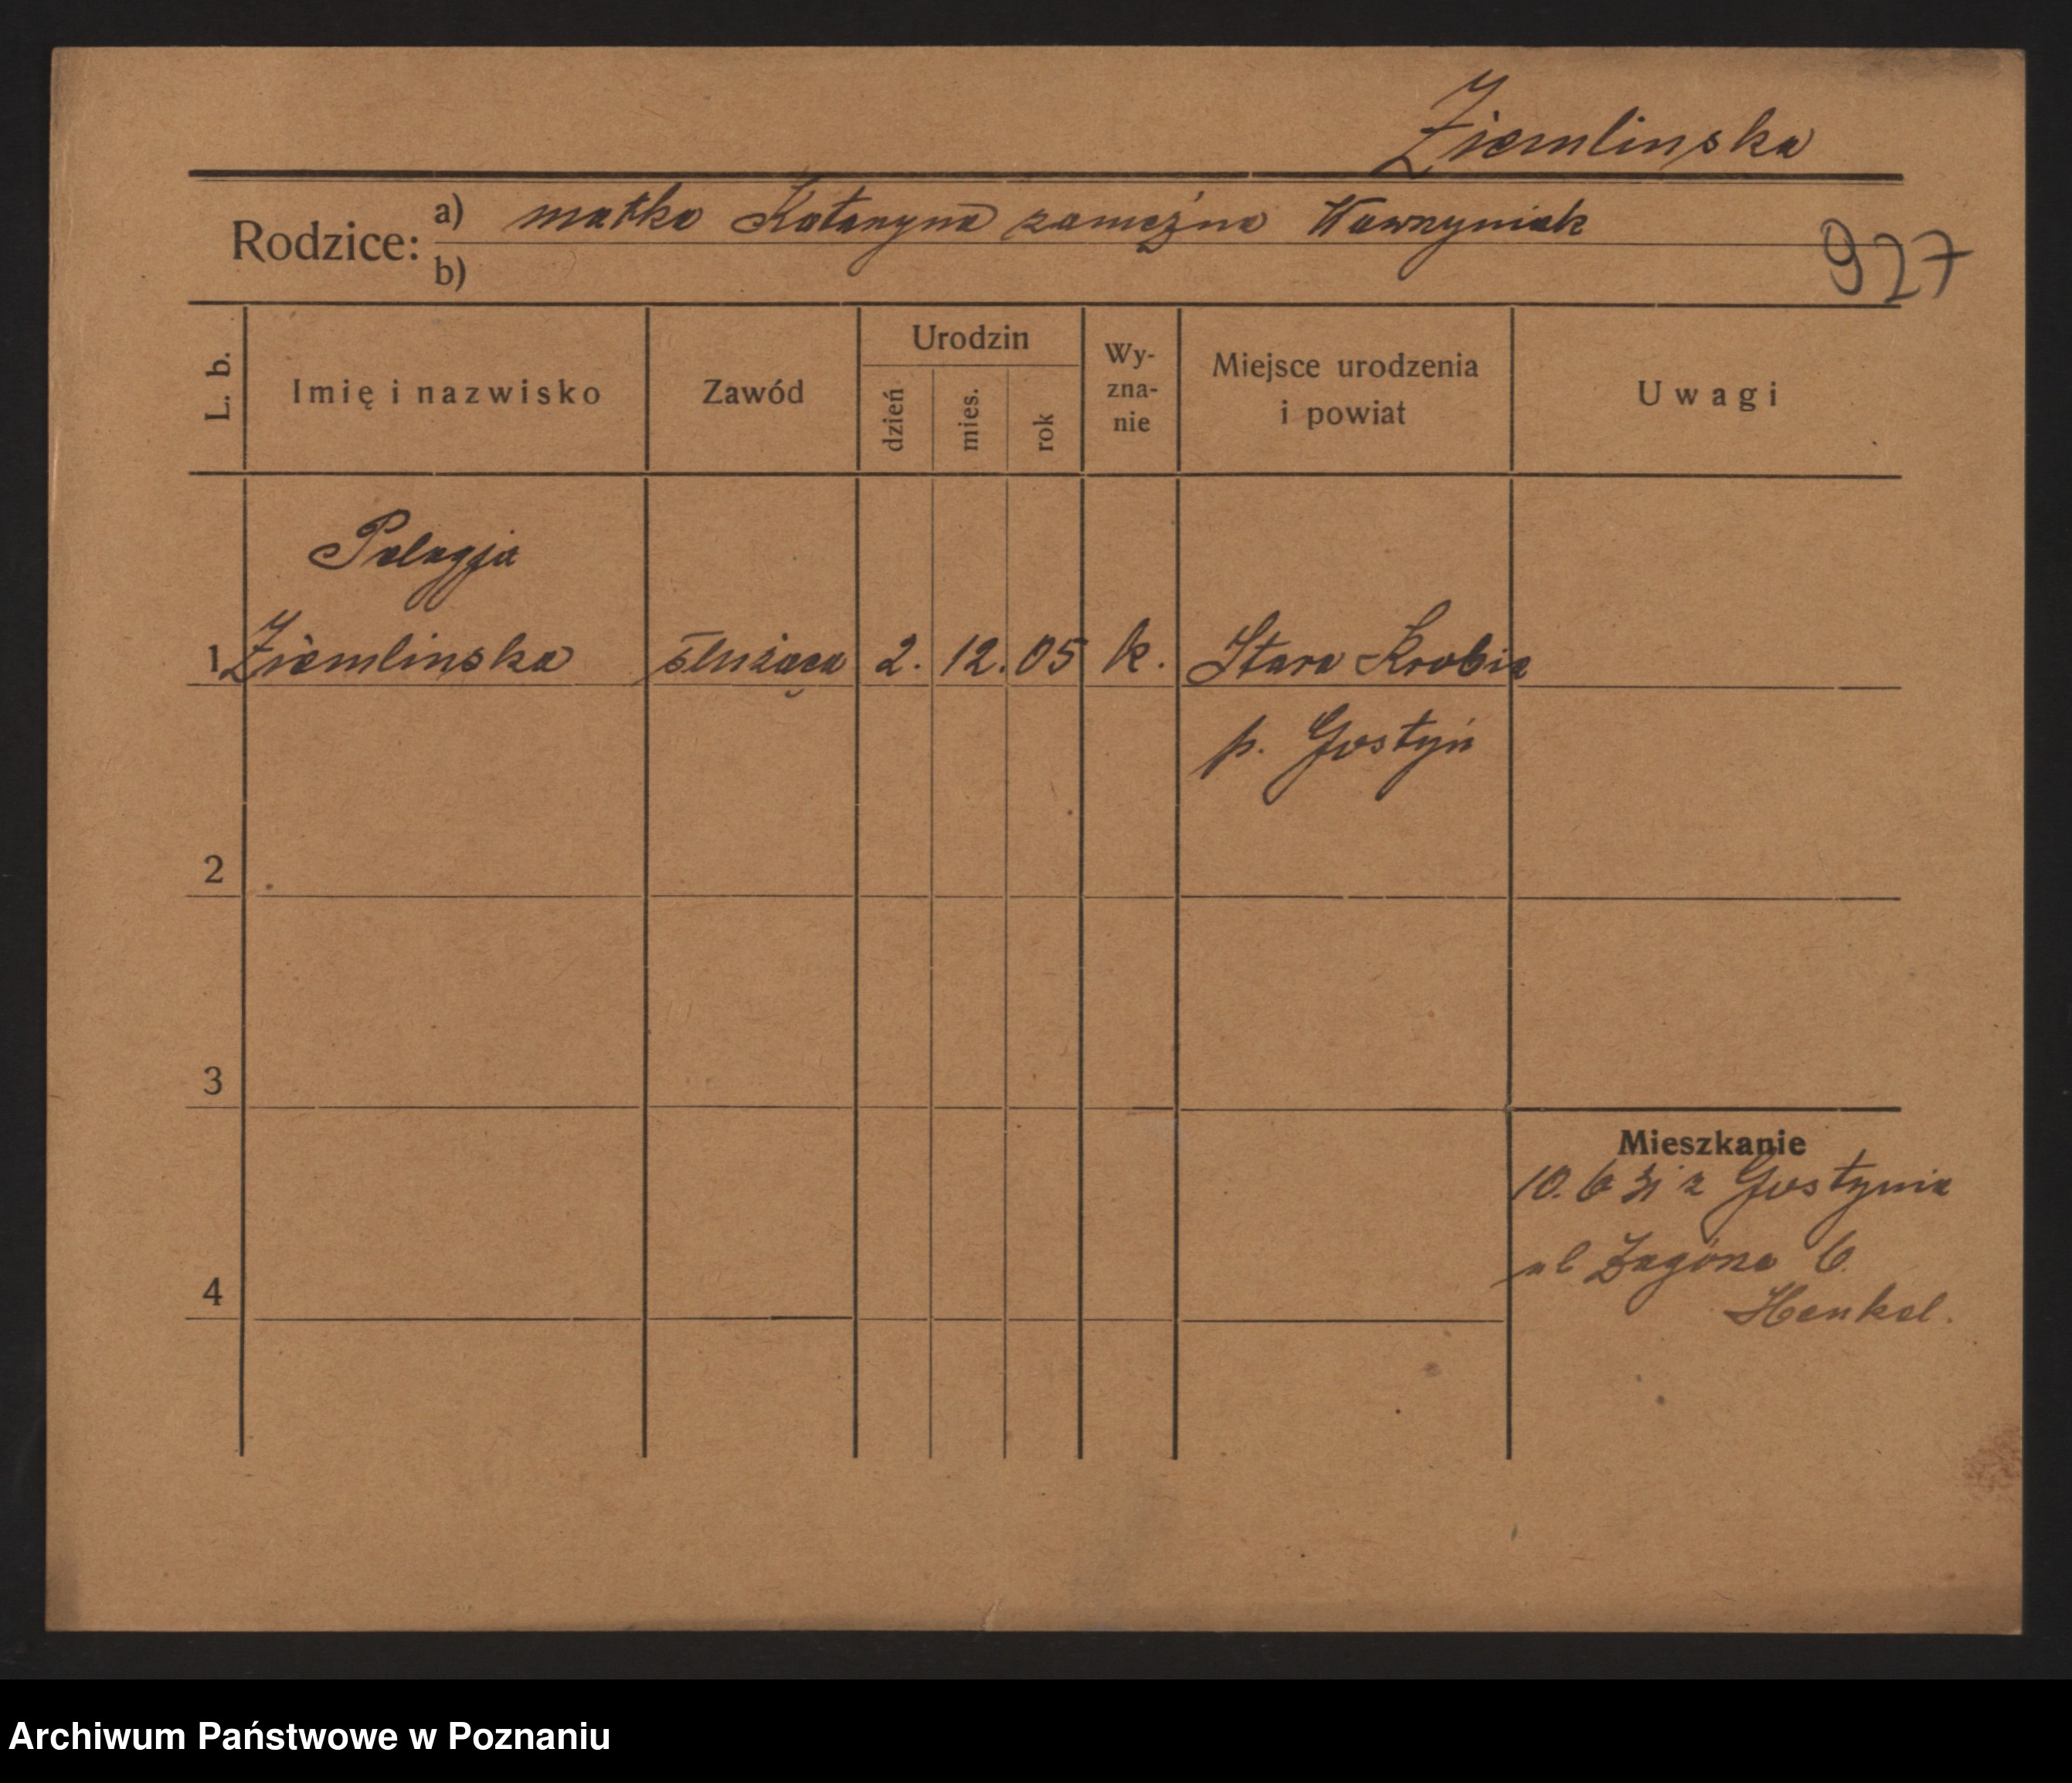 Ziemlinska
Rodzice: a) matka Katarzyna zamężna Wawrzyniak
b)
927
L. b.
Imię i nazwisko
Zawód
Urodzin
dzień
mies.
rok
Wy-
zna-
nie
Miejsce urodzenia
i powiat
Uwagi
Pelagja
1 Ziemlinska służąca 2. 12. 05 k. Stara Krobia
p. Gostyń
2
3
Mieszkanie
10. 6 31 z Gostynia
ul Zagórna 6.
4
Henkel.
Archiwum Państwowe w Poznaniu